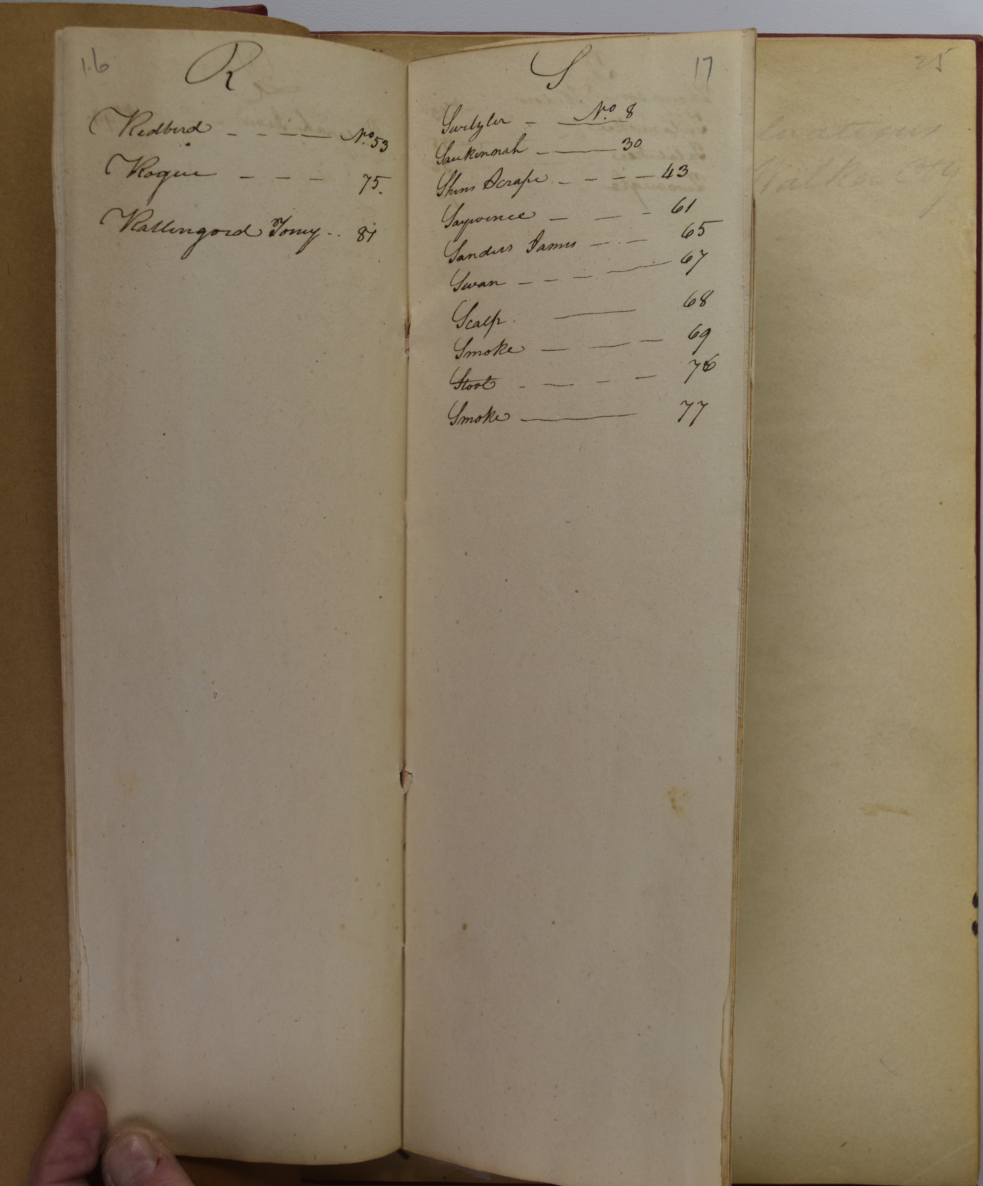 16
R
Redbird - - - - No. 53
Rogue - - - 75.
Rattlingourd Tomy - - 81
17
S
Switzler - No. 8
Saukinnah - 30
Shins Scrape - - - - 43
Saywince - - - 61
Sanders James - - - 65
Swan - - - - 67
Scalp. - 68
Smoke - - - 69
Stool - - - - 76
Smoke - 77
25
Valuations
Walker Cty